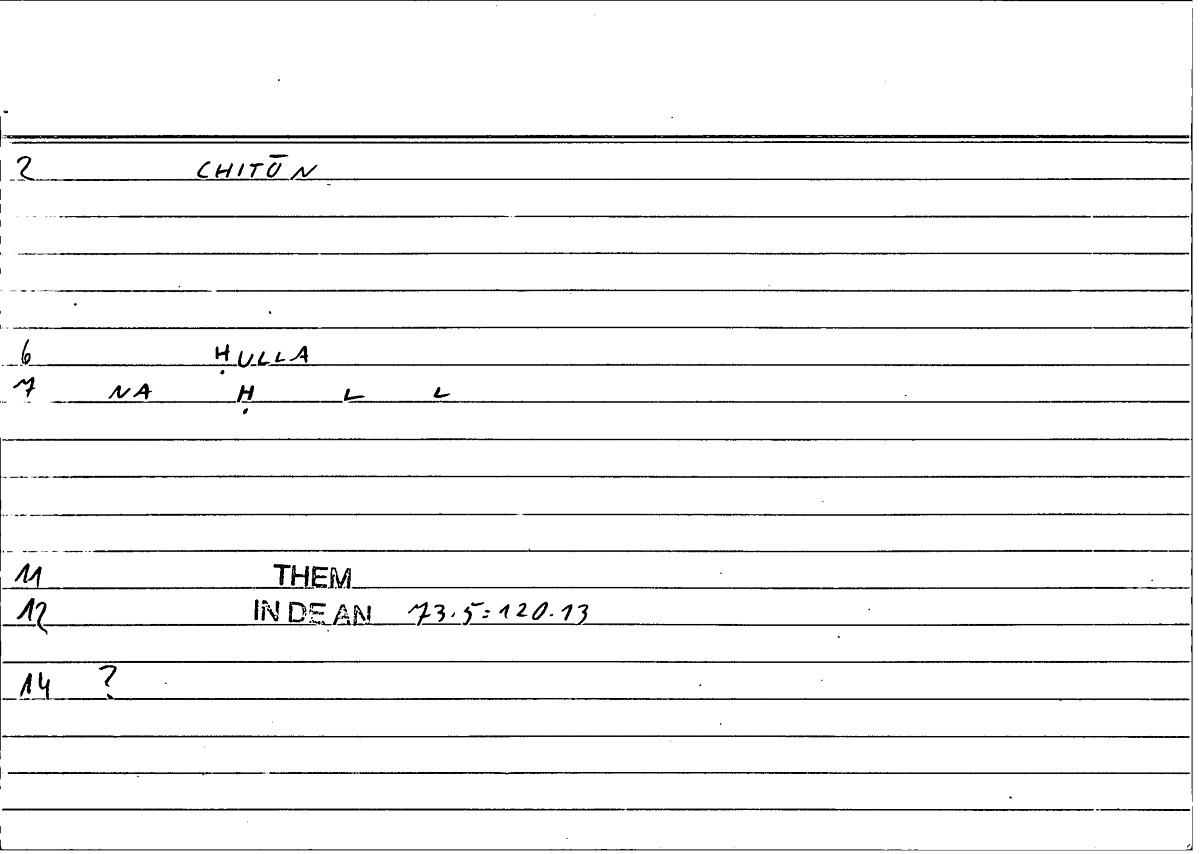 2 CHITŪN
6 ḤULLA
7 NA Ḥ L L
11 THEM
12 IN DE AN 73.5=120.13
14 ?